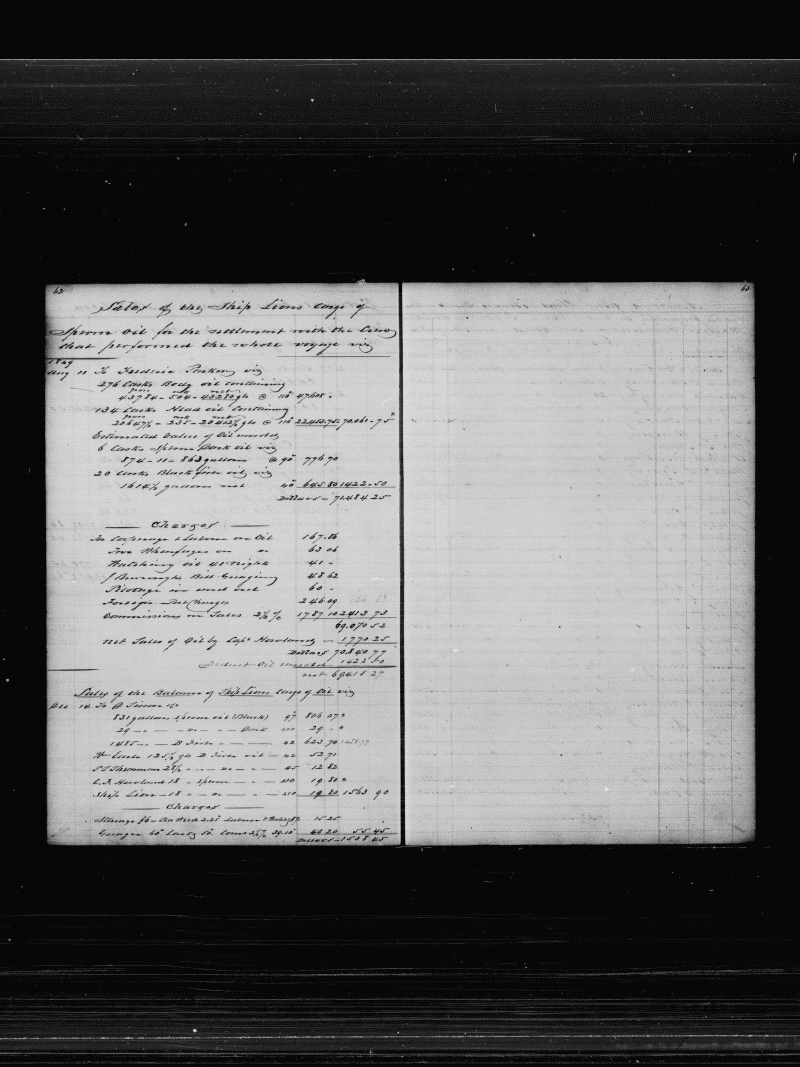 62
63
Sales of the Ship Lions Cargo of
Sperm Oil for the settlement with the Crew
that performed the whole voyage viz
1849
Aug 11 To Frederic Parker viz
276 Casks Body oil containing
gross net
43784 - 504 - 43280 gls @ 110 47608 "
134 Casks Head oil Containing
gross net
20647½ - 235 - 20412½ gls @ 110 22453.75 70.061 - 75
Estimated Value of Oil unsold
6 Casks Sperm Dark oil viz
874 - 11 - 863 gallons @ 90 776 70
20 Casks Black fish oil viz
1614½ gallons net 40 645 80 1422 - 50
Dollars - 71.484 25
Charges
To Cooperage & Labour on Oil 167.86
Wharfages on " 63 06
Watching oil 41 nights 41 "
J Burroughs Bill Gauging 48 62
Pilotage in and out 60 "
Foreign Port Charges 246.09
Commissions on Sales 2½ % 1787.10 2413 73
69.070 52
net Sales of Oil by Capt Howland 1770 25
Dollars 70.840 77
Deduct Oil unsold 1422 50
net 69.418 27
Sales of the Balance of Ship Lions Cargo of Oil viz
Dec 14 To
831 gallons Sperm oil (Black) 97 806 07 "
29 " Dark 100 29 " "
1485 " B Fish " 42 623 70 1458.77
125½ gls B Fish oil 42 52.71
28½ " 45 12 82
Howland 18 " Sperm " 110 19 80 "
Ship Lion 18 " 110 19 80 1563 90
Charges
Storage $6 - Labour & 15 25
Gauger 60 50. Coms 2½% 39.10 40 20 55 45
Dollars 1508 45